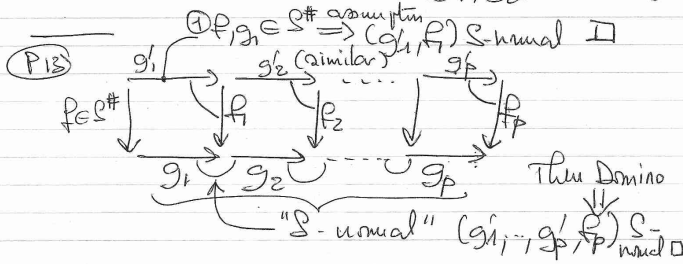 ① f, g₁ ∈ S# assumption ⟹ (g'₁, f₁) S-normal □
P13
g'₁ g'₂ (similar) ---- g'p
f ∈ S# f₁ f₂ fp
g₁ g₂ ---- gp
Then Domino
"S-normal" (g'₁, ..., g'p, fp) S-normal □